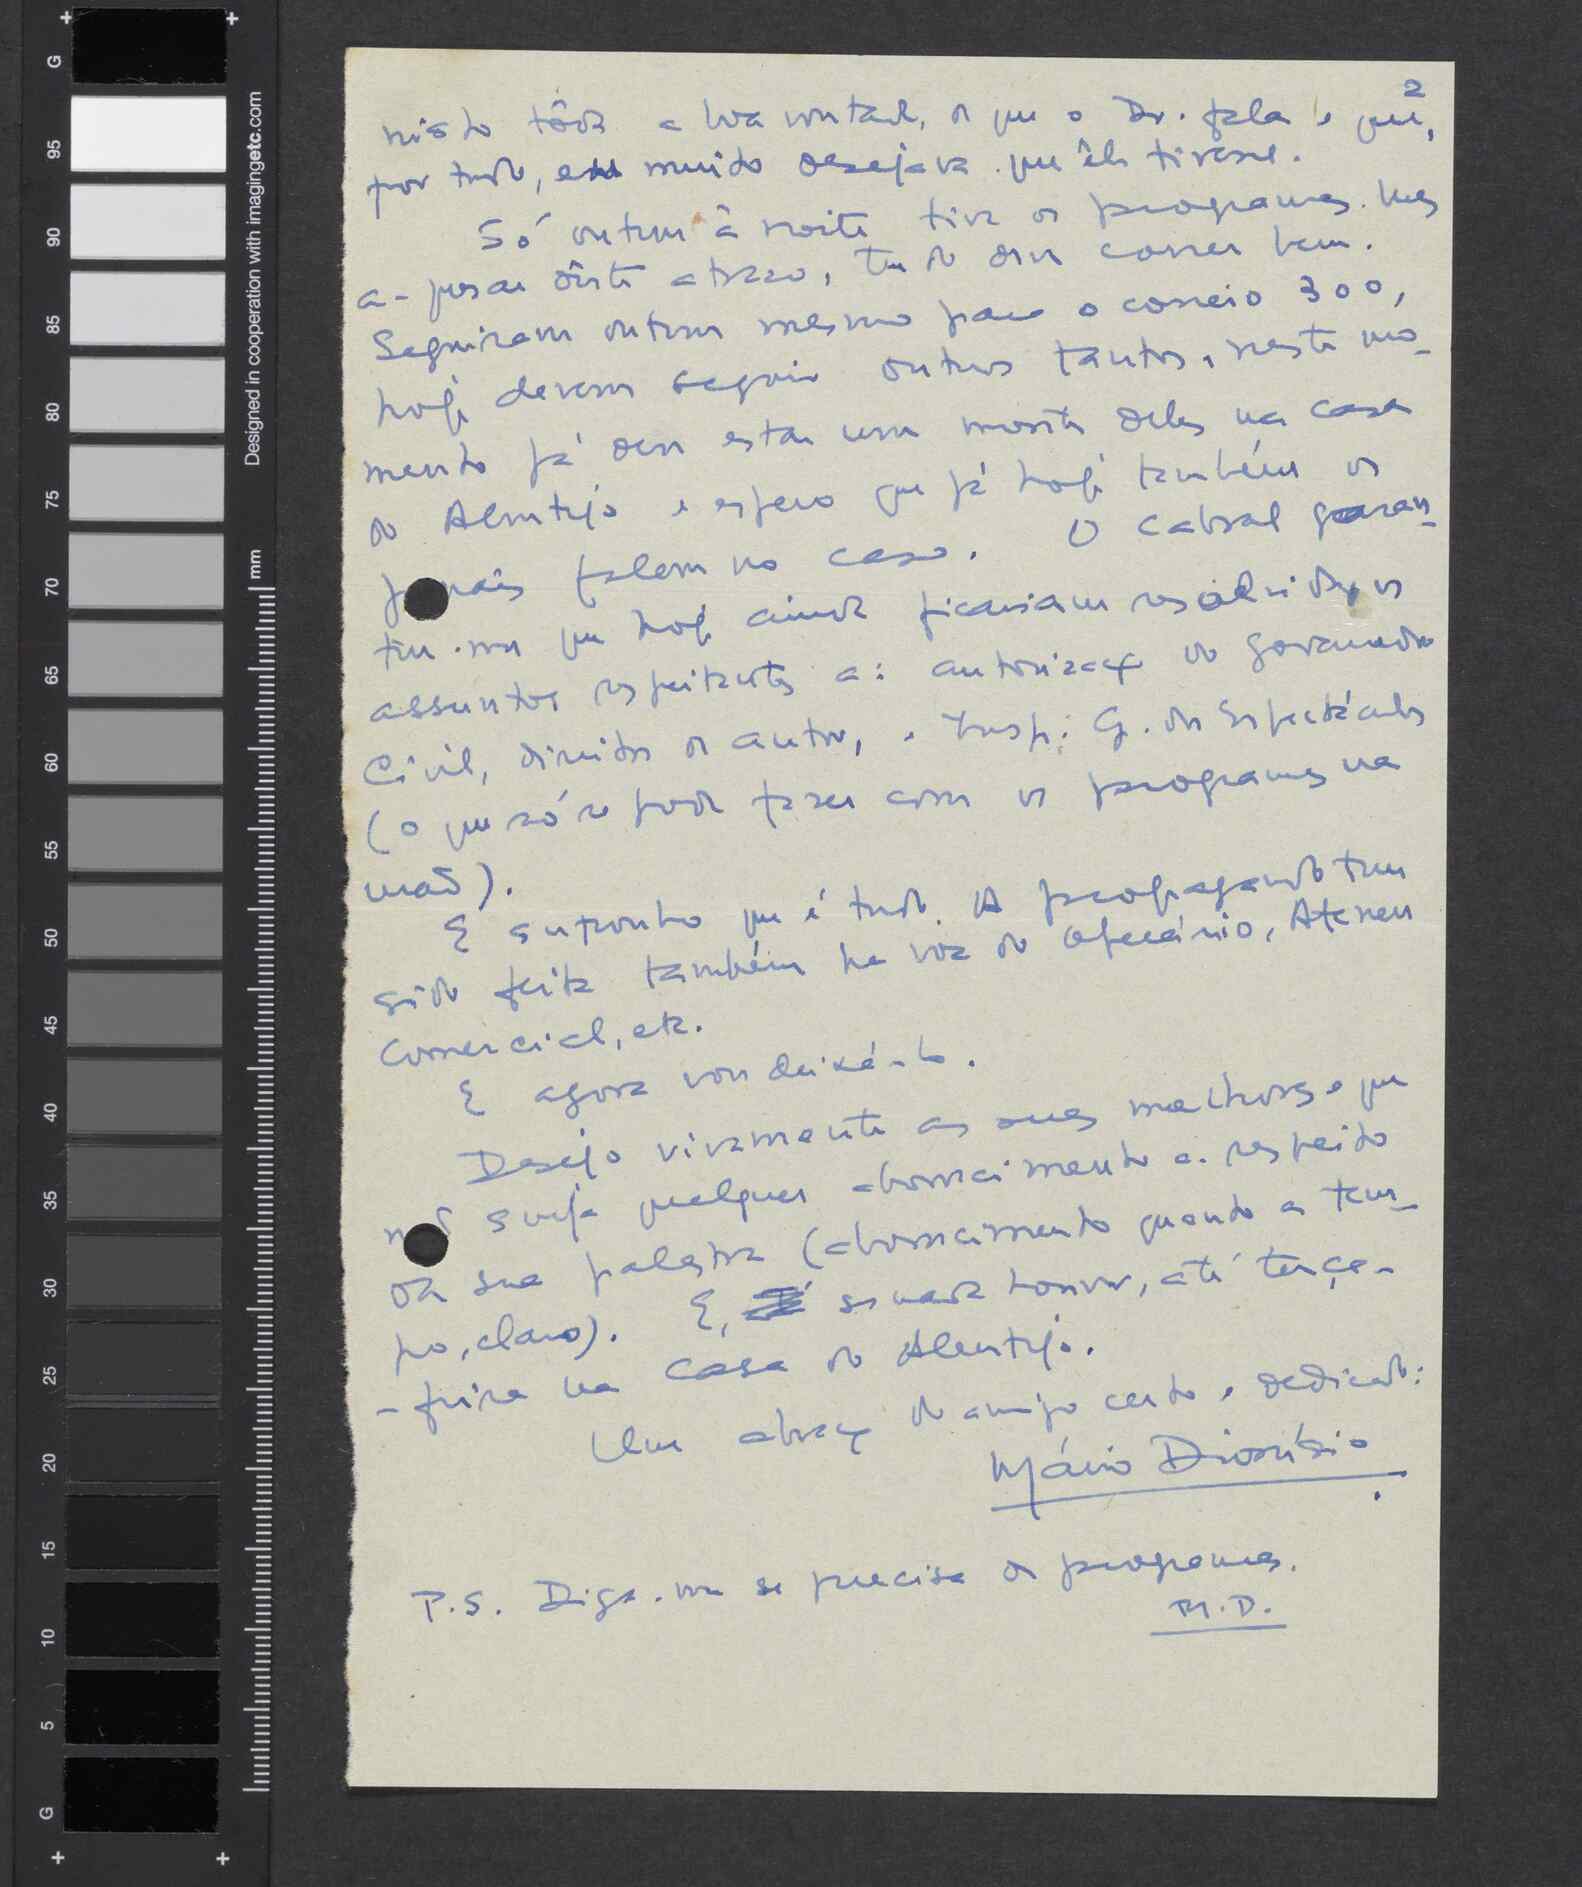 2
nisto tôda a boa vontade, de que o Dr. fala e que,
por tudo, eu muito desejava que êle tivesse.
Só ontem à noite tive os programas. Mas
a-pesar dêste atrazo, tudo deve correr bem.
Seguiram ontem mesmo para o correio 300,
hoje devem seguir outros tantos, neste mo-
mento já deve estar um monte deles na Casa
do Alentejo e espero que já hoje também os
jornais falem no caso. O Cabral garan-
tiu-me que hoje ainda ficariam resolvidos os
assuntos respeitantes a: autorização do Governador
Civil, direitos de autor, e Insp. G. dos Espectáculos
(o que só se pode fazer com os programas na
mão).
E suponho que é tudo. A propaganda tem
sido feita também na Voz do Operário, Ateneu
Comercial, etc.
E agora vou deixá-lo.
Desejo vivamente as suas melhoras e que
não surja qualquer aborrecimento a respeito
da sua palestra (aborrecimento quando a tem-
po, claro). E, se nada houver, até terça-
-feira na Casa do Alentejo.
Um abraço do amigo certo e dedicado:
Mário Dionísio
P.S. Diga-me se precisa de programas.
M.D.
Designed in cooperation with imagingetc.com
mm
G
95
90
85
80
75
70
65
60
55
50
45
40
35
30
25
20
15
10
5
G